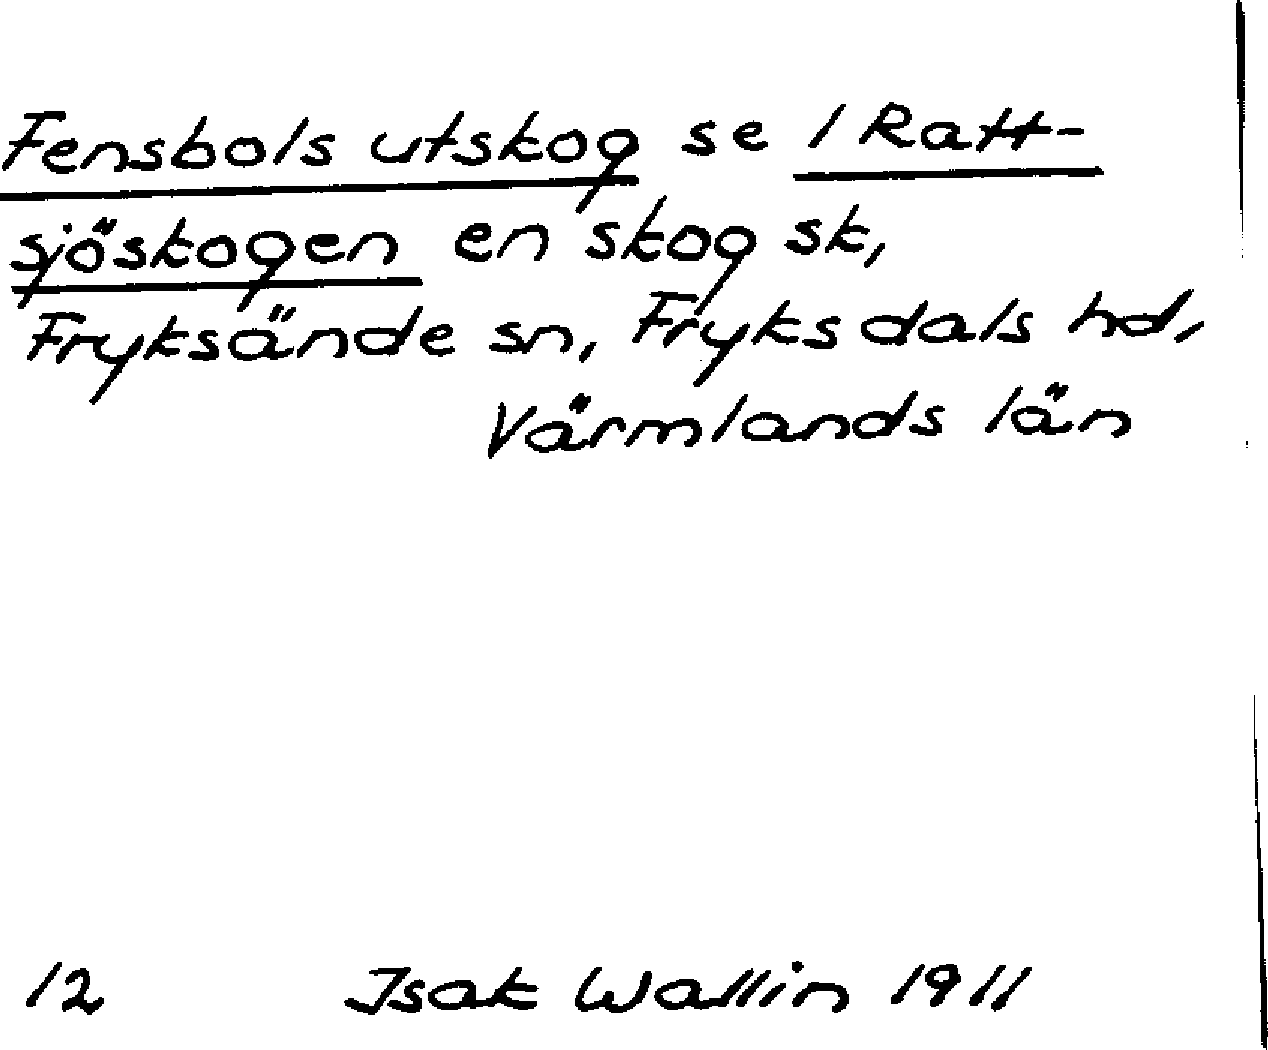 Fensbols utskog se 1 Ratt-
sjöskogen en skog sk,
Fryksände sn, Fryksdals hd,
Värmlands län
12 Isak Wallin 1911